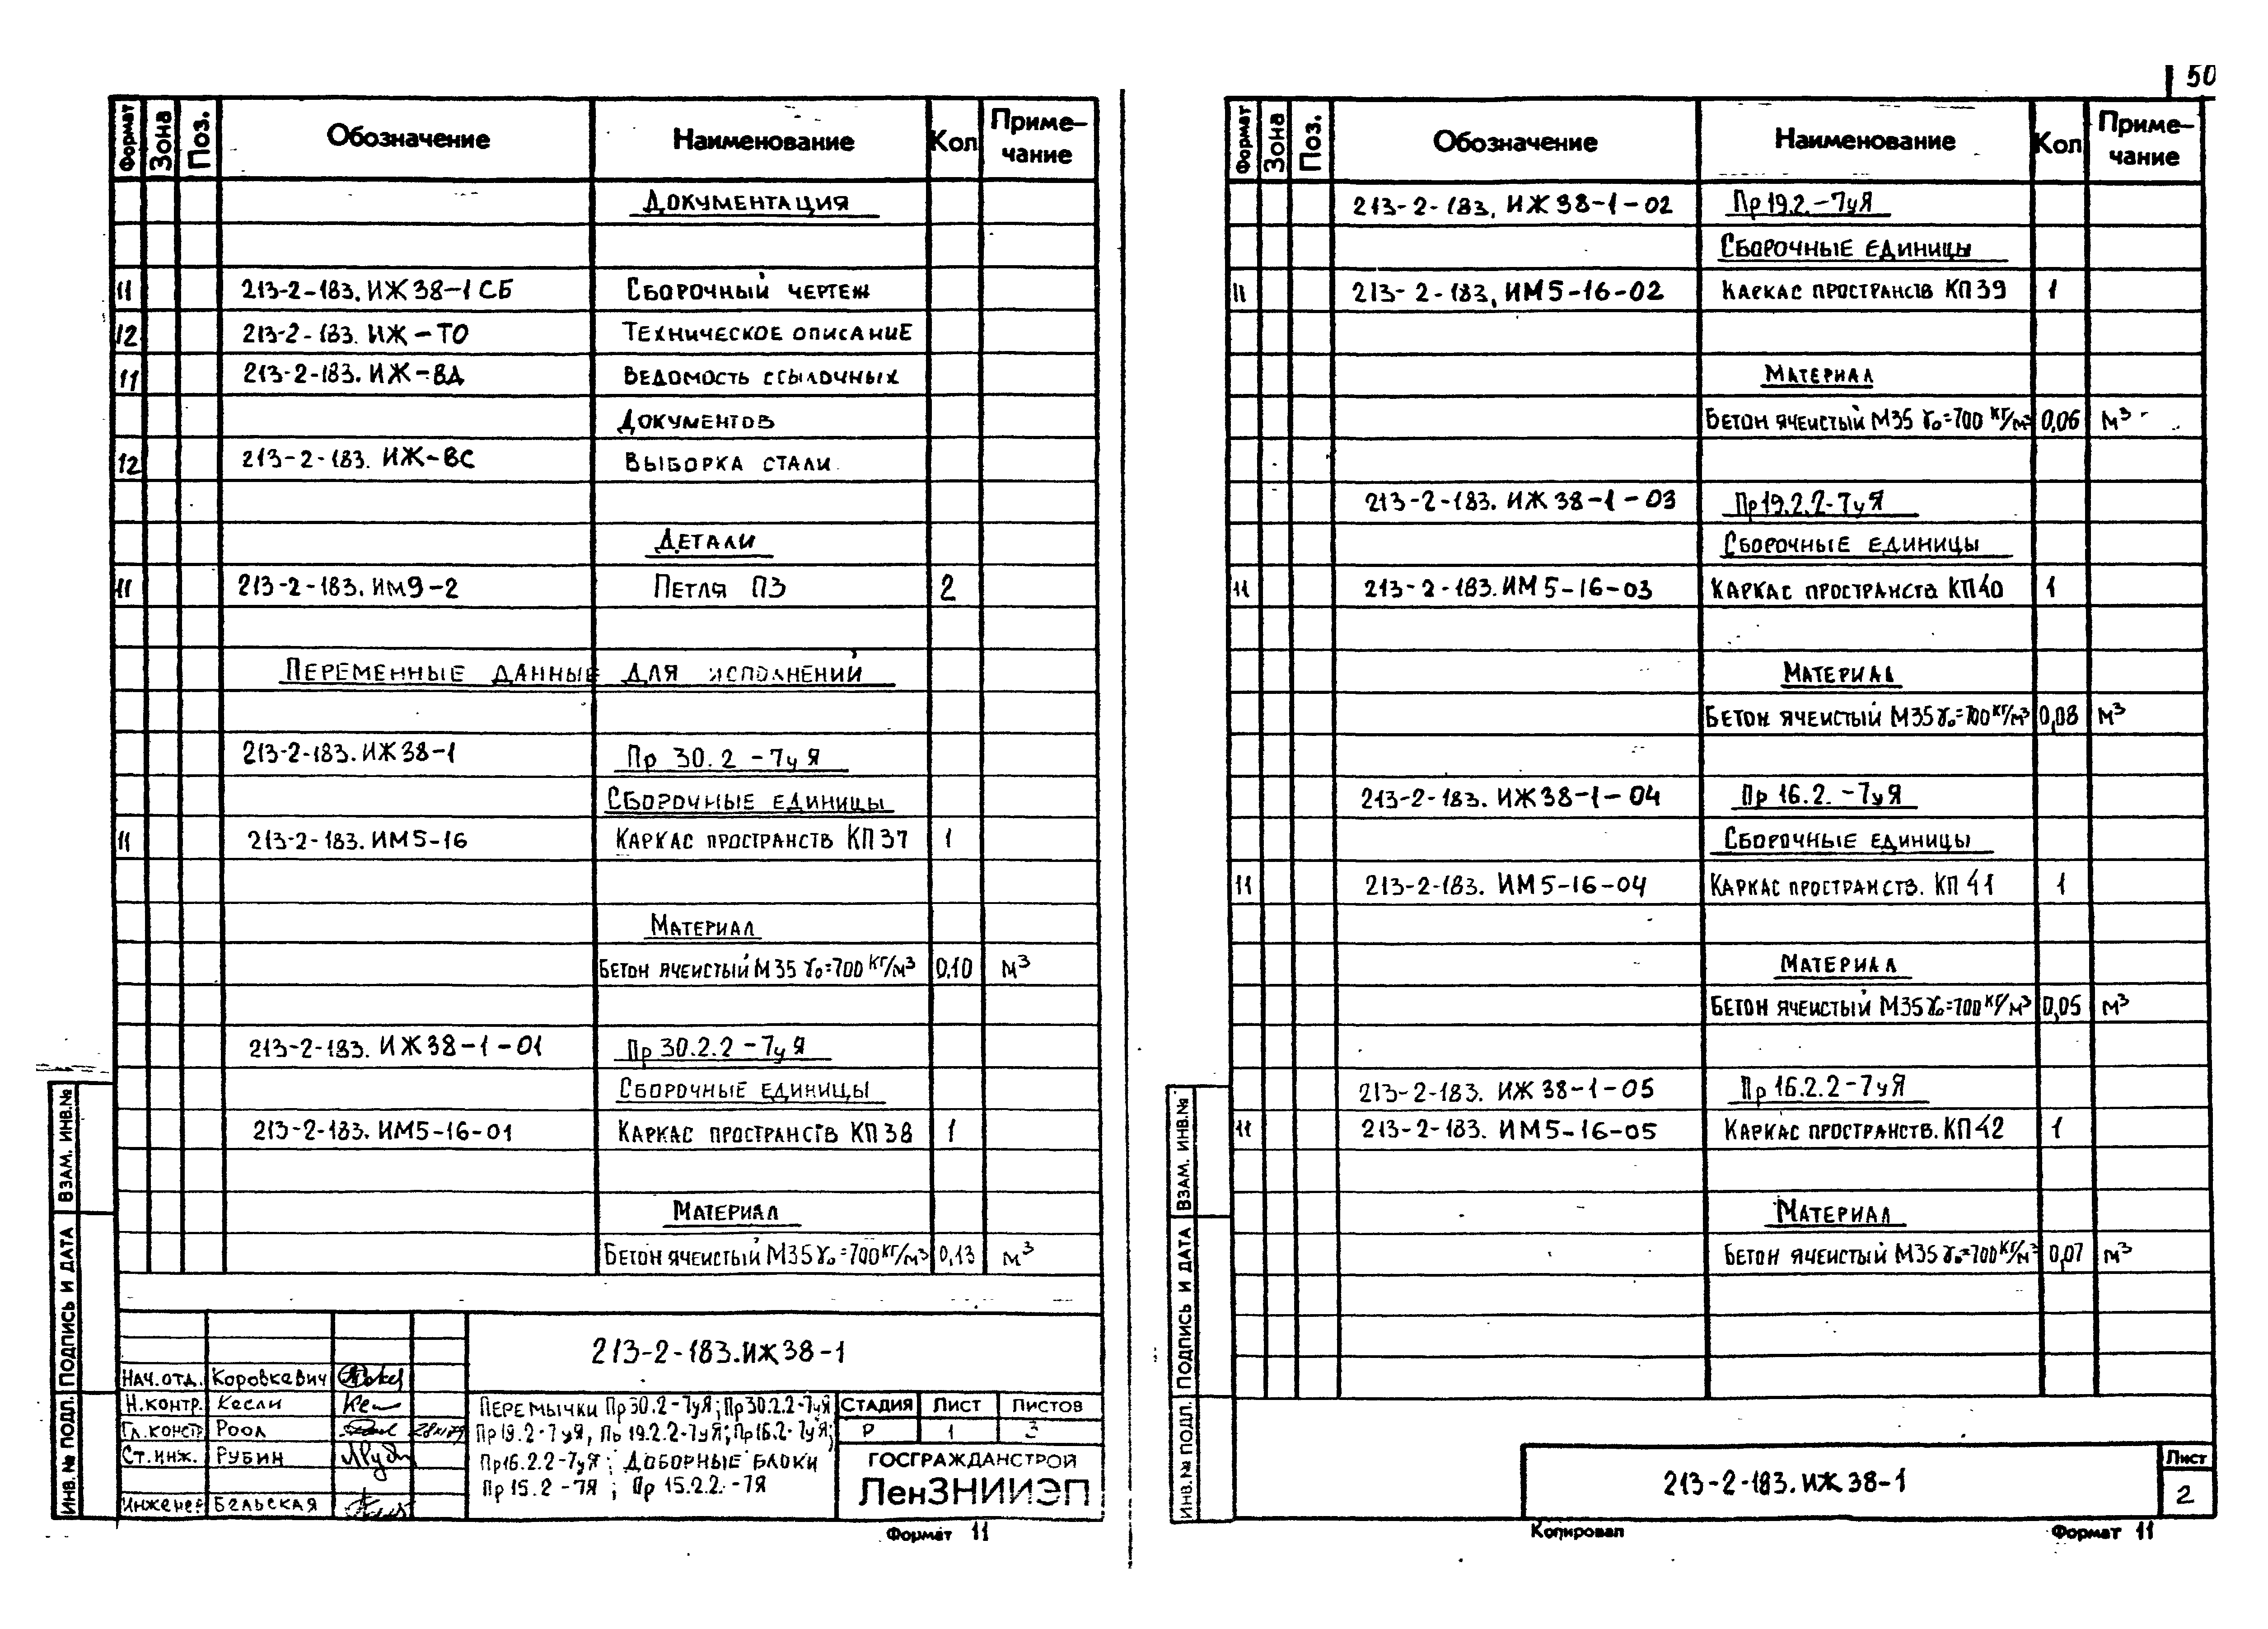 50
Формат Зона Поз. Обозначение Наименование Кол Приме-чание
Документация
11 213-2-183.ИЖ38-1СБ Сборочный чертеж
12 213-2-183.ИЖ-ТО Техническое описание
11 213-2-183.ИЖ-ВД Ведомость ссылочных
документов
12 213-2-183.ИЖ-ВС Выборка стали
Детали
11 213-2-183.ИМ9-2 Петля П3 2
Переменные данные для исполнений
213-2-183.ИЖ38-1 Пр 30.2-7уЯ
Сборочные единицы
11 213-2-183.ИМ5-16 Каркас пространств КП37 1
Материал
Бетон ячеистый М35 γ₀=700 кг/м³ 0.10 м³
213-2-183.ИЖ38-1-01 Пр 30.2.2-7уЯ
Сборочные единицы
213-2-183.ИМ5-16-01 Каркас пространств КП38 1
Материал
Бетон ячеистый М35 γ₀=700 кг/м³ 0,13 м³
213-2-183.ИЖ38-1
Нач.отд. Коровкевич
Н.контр. Кесли
Гл.констр Роол
Ст.инж. Рубин
Инженер Бельская
Перемычки Пр30.2-7уЯ; Пр30.2.2-7уЯ
Пр19.2-7уЯ, Пь 19.2.2-7уЯ; Пр16.2-7уЯ;
Пр16.2.2-7уЯ; Доборные блоки
Пр 15.2-7Я; Пр 15.2.2.-7Я
Стадия Лист Листов
Р 1 3
ГОСГРАЖДАНСТРОЙ
ЛенЗНИИЭП
Формат 11
Инв.№ подл. Подпись и дата Взам. инв.№
Формат Зона Поз. Обозначение Наименование Кол Приме-чание
213-2-183.ИЖ38-1-02 Пр19.2.-7уЯ
Сборочные единицы
11 213-2-183.ИМ5-16-02 Каркас пространств КП39 1
Материал
Бетон ячеистый М35 γ₀=700 кг/м³ 0,06 м³
213-2-183.ИЖ38-1-03 Пр19.2.2-7уЯ
Сборочные единицы
11 213-2-183.ИМ5-16-03 Каркас пространств КП40 1
Материал
Бетон ячеистый М35 γ₀=700 кг/м³ 0,08 м³
213-2-183.ИЖ38-1-04 Пр 16.2.-7уЯ
Сборочные единицы
11 213-2-183.ИМ5-16-04 Каркас пространств. КП41 1
Материал
Бетон ячеистый М35 γ₀=700 кг/м³ 0,05 м³
213-2-183.ИЖ38-1-05 Пр 16.2.2-7уЯ
11 213-2-183.ИМ5-16-05 Каркас пространств. КП42 1
Материал
Бетон ячеистый М35 γ₀=700 кг/м³ 0,07 м³
213-2-183.ИЖ38-1
Лист
2
Копировал Формат 11
Инв.№ подл. Подпись и дата Взам. инв.№